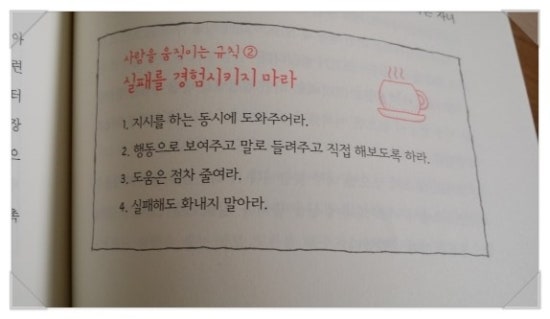 사람을 움직이는 규칙 ②
실패를 경험시키지 마라
1. 지시를 하는 동시에 도와주어라.
2. 행동으로 보여주고 말로 들려주고 직접 해보도록 하라.
3. 도움은 점차 줄여라.
4. 실패해도 화내지 말아라.